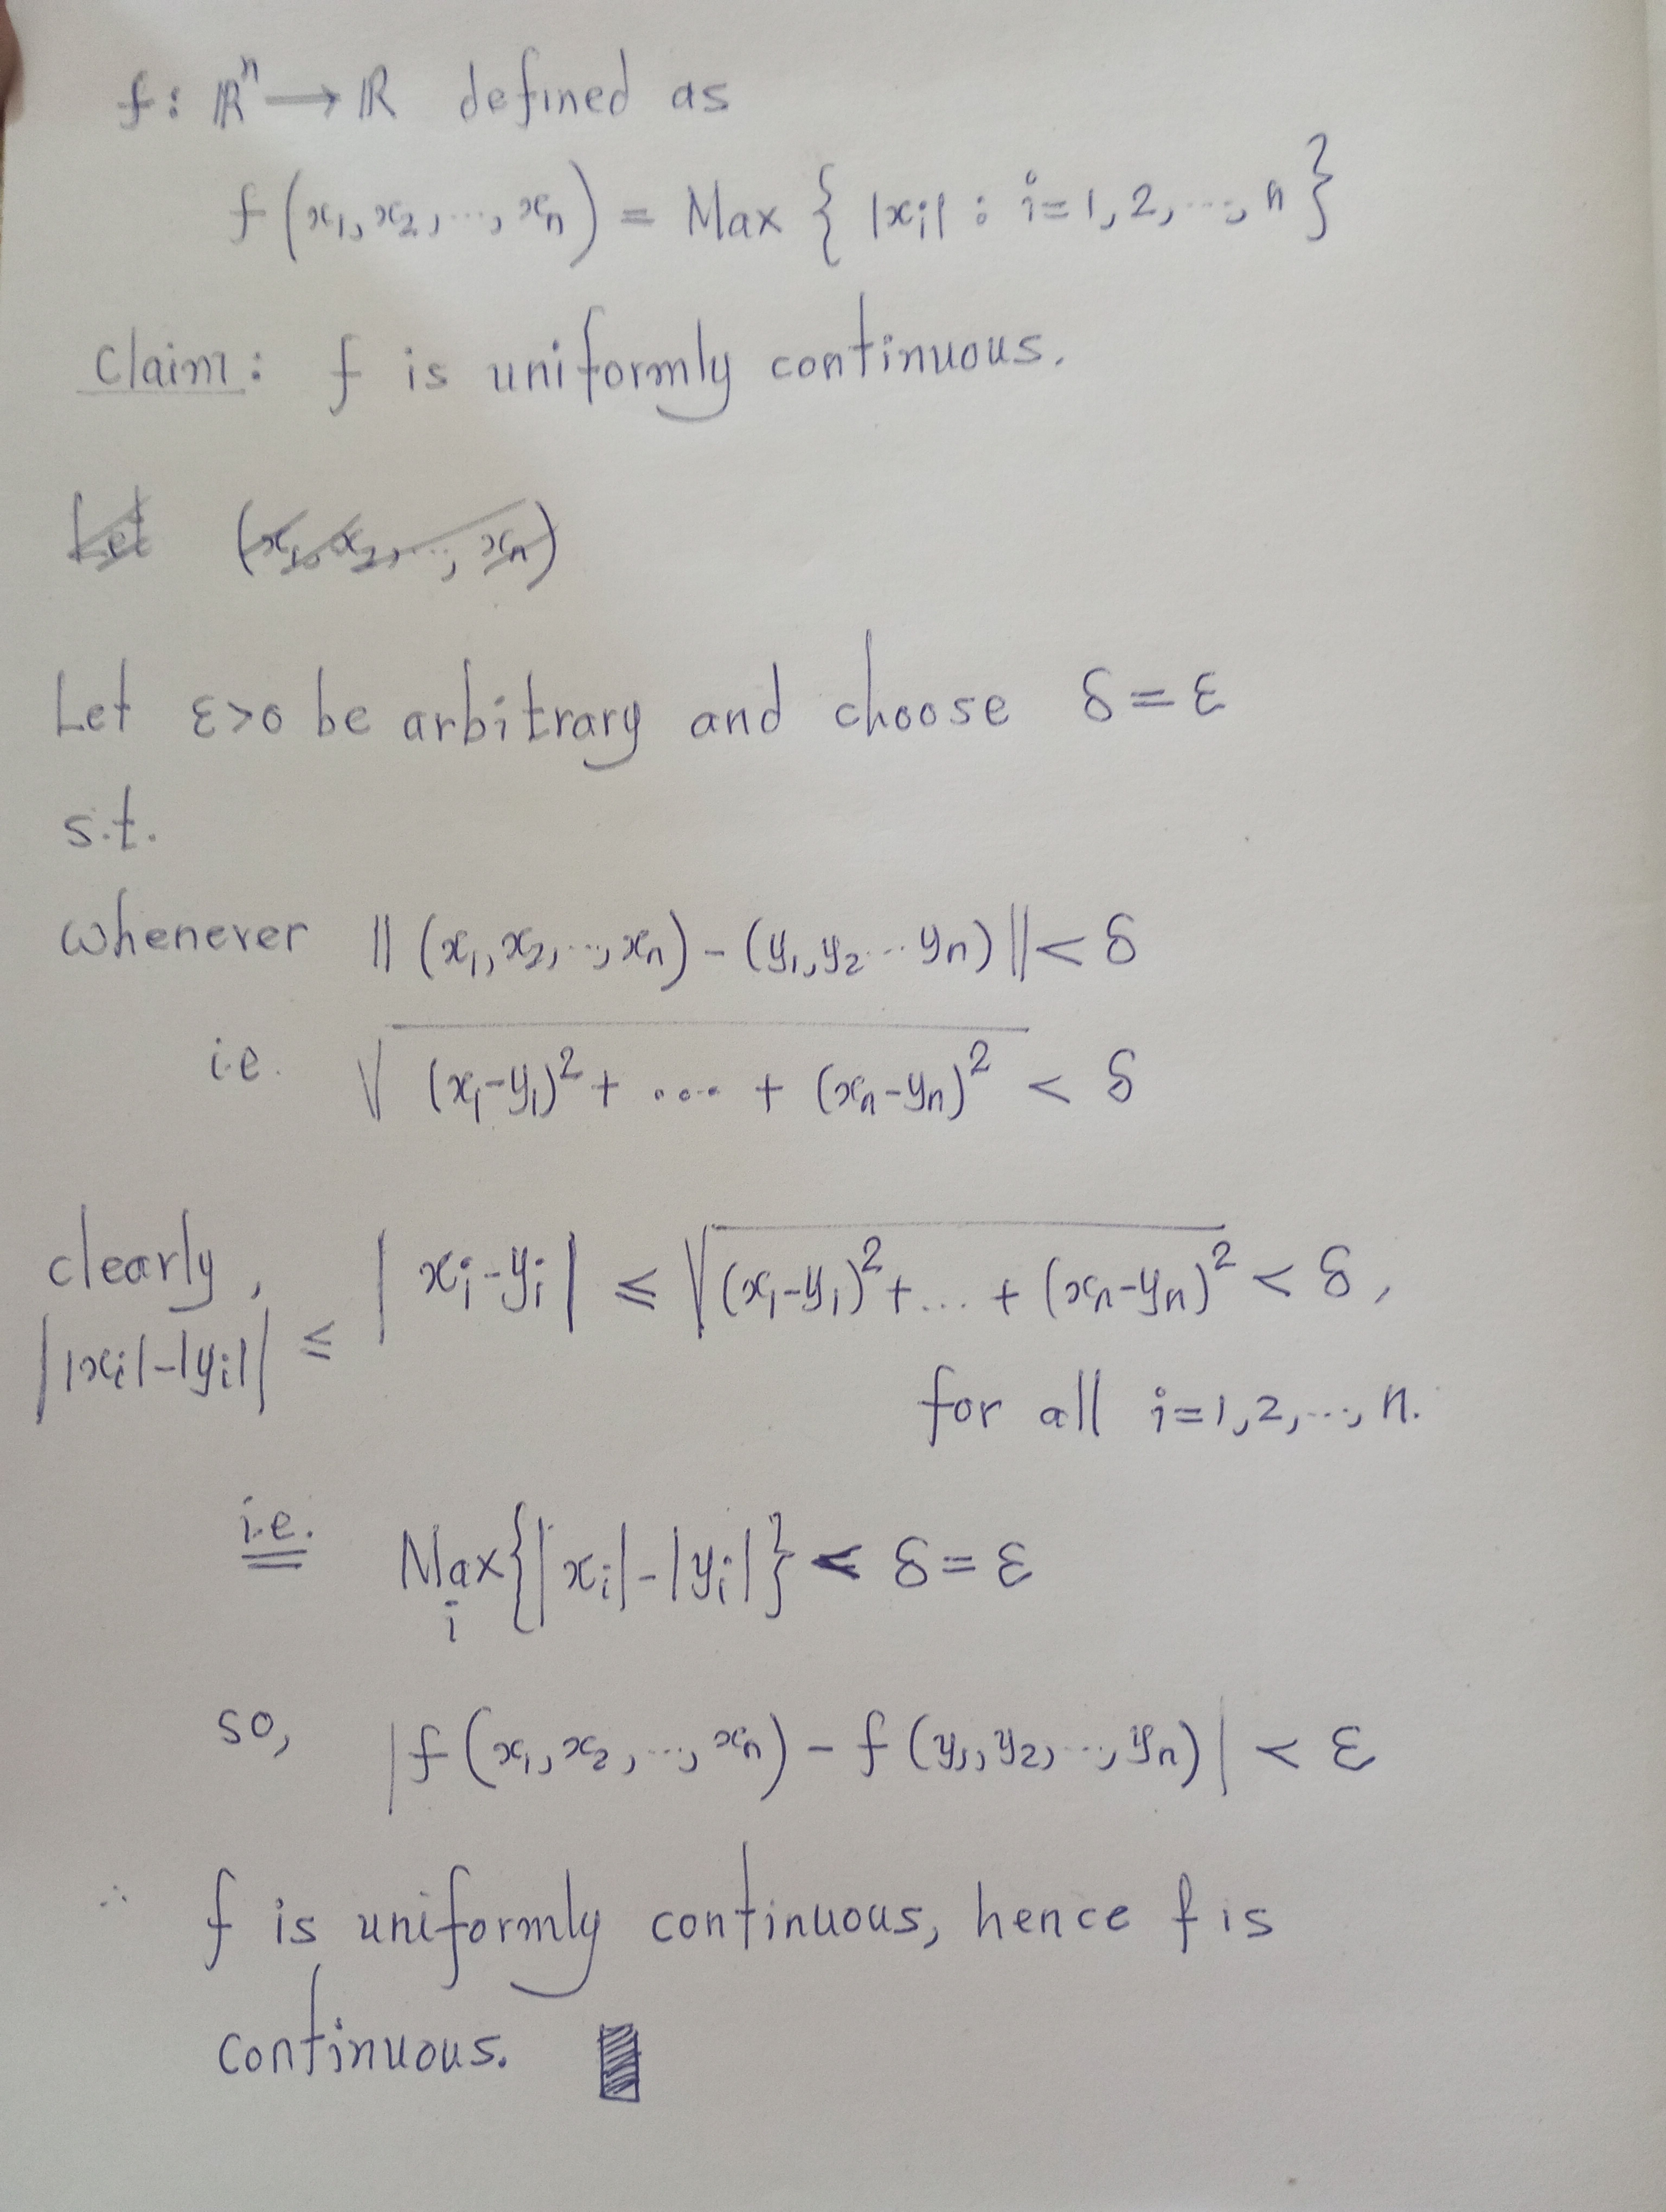 f: ℝⁿ → ℝ defined as
f(x₁, x₂, ..., xₙ) = Max { |xᵢ| : i=1, 2, ..., n }
Claim: f is uniformly continuous.
Let (x₁, x₂, ..., xₙ)
Let ε>0 be arbitrary and choose δ=ε
s.t.
whenever ||(x₁, x₂, ..., xₙ) - (y₁, y₂ ... yₙ)|| < δ
i.e. √((x₁-y₁)² + .... + (xₙ-yₙ)²) < δ
clearly, |xᵢ-yᵢ| ≤ √((x₁-y₁)² + ... + (xₙ-yₙ)²) < δ,
||xᵢ|-|yᵢ|| ≤
for all i=1, 2, ..., n.
i.e. Max{|xᵢ|-|yᵢ|} < δ=ε
i
so, |f(x₁, x₂, ..., xₙ) - f(y₁, y₂, ..., yₙ)| < ε
∴ f is uniformly continuous, hence f is
continuous.